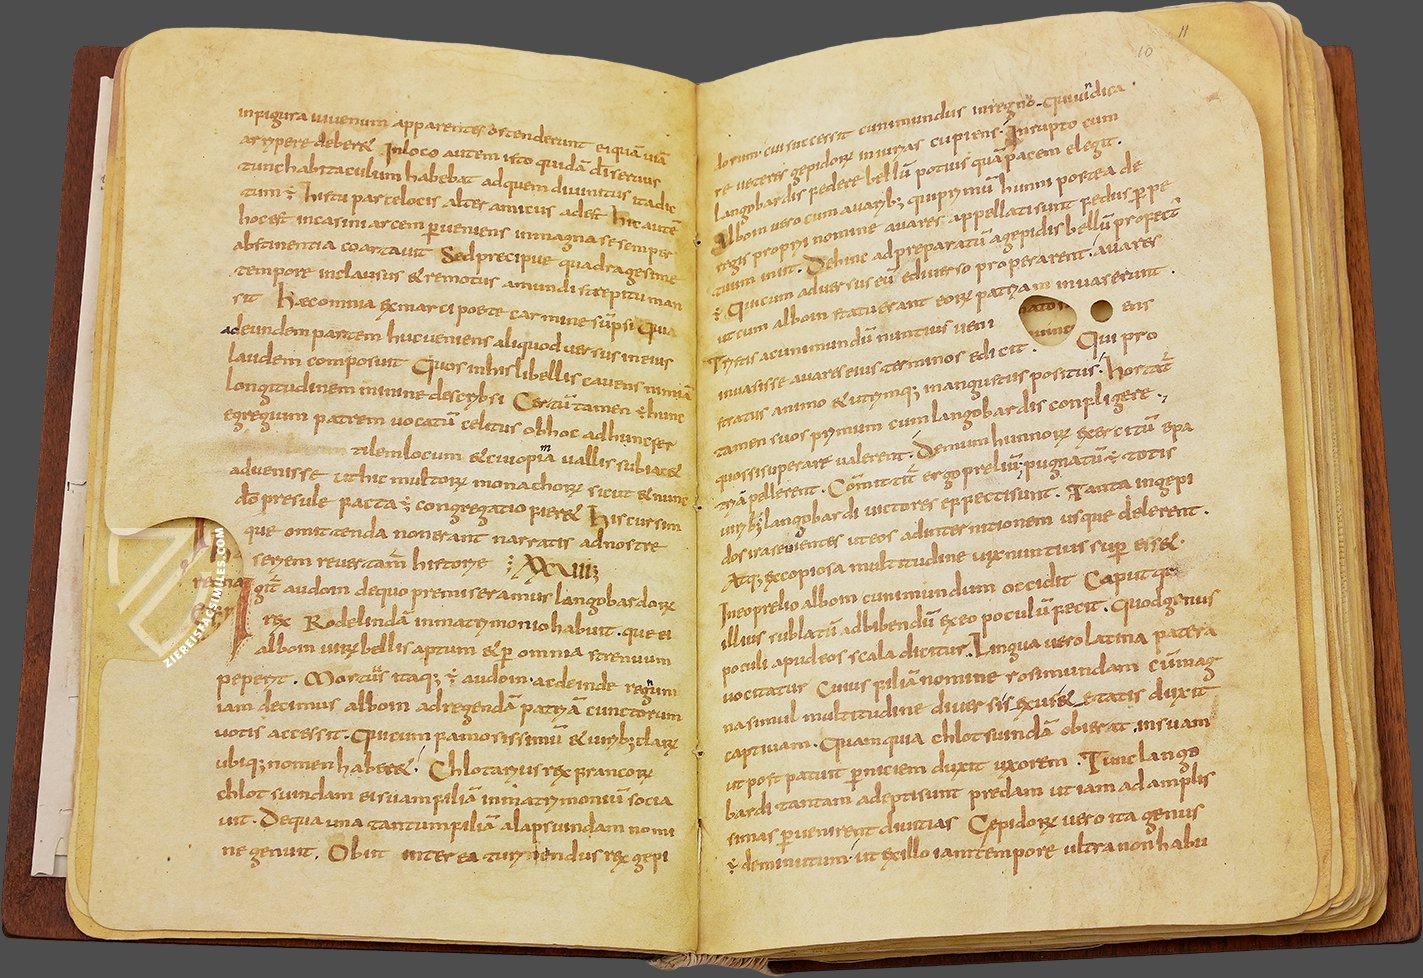 infigura iuvenum apparentes ostenderunt ei quā viā
arripere deberet In loco autem isto quidā dī servus
tunc habitaculum habebat ad quem divinitus ita dic
tum ÷ hirtu par celocis alter amicus adest hic autē
hoc est incasini arcem perveniens in magna se semper
abstinentia coartavit Sed precipue quadragesime
tempore inclausus & remotus a mundi strepitu man
sit Hæc omnia ex marci poete carmine sūpsi Quia
ad eundem partem huc veniens aliquod versus in eius
laudem composuit Quos in his libellis cavens nimiā
longitudinem minime descripsi Certū tamen ÷ hunc
egregium patrem vocatū celitus ob hoc ad hunc fer
tilem locum & cui opima vallis subiac&
advenisse ut hic multorum monachorum sicut & nunc
do presule facta ÷ congregatio fieret His cursim
que omittenda non erant narratis ad nostre
seriem revertamur historie ÷ XXVIIII
git audoin de quo premiseramus langobardorum
rex Rodelindā in matrimonio habuit. que ei
alboin virum bellis aptum & per omnia strenuum
peperit. Mortuus itaq; ÷ audoin. ac deinde regum
iam decimus alboin ad regendā patriā cunctorum
votis accessit. Qui cum famosissimū & virib; clarum
ubiq; nomen haberet. Chlotarius rex francorum
chlotsuindam ei suam filiā in matrimoniū socia
vit. De qua una tantum filiā alapsuindam nomi
ne genuit. Obiit interea turisendus rex gepi
10
11
dorum. cui successit cunimundus in regno. Qui vindica
re veteres gepidorum iniurias cupiens. Inrupto cum
langobardis federe bellū potius quā pacem elegit.
Alboin vero cum avarib; qui primū hunni postea de
regis proprii nomine avares appellati sunt fedus perpe
tuum iniit. Dehinc ad preparatū a gepidis bellū profectus
÷ Qui cum adversus eū e diverso properarent. avares
ut cum alboin statuerant eorum patriam invaserunt.
Tristis ad cunimundū nuntius veniens
invasisse avares eius terminos edicit. Qui pro
stratus animo & utrimq; in angustiis positus. Hortatur
tamen suos primum cum langobardis confligere.
quos si superare valerent. Demum hunnorum exercitū e pa
tria pellerent. Committitur ergo preliū. pugnatū ÷ totis
virib; langobardi victores effecti sunt. Tanta in gepi
dos ira sevientes ut eos ad internitionem usque delerent.
Atq; ex copiosa multitudine vix nuntius superesset.
In eo prelio alboin cunimundum occidit Caputque
illius sublatū ad bibendū ex eo poculū fecit. Quod genus
poculi apud eos scala dicitur. Lingua vero latina patera
vocitatur Cuius filiā nomine rosimundam cū mag
na simul multitudine diversi sexus & etatis duxit
captivam. Quam quia chlotsuindā obierat. in suam
ut post patuit perniciem duxit uxorem. Tunc lango
bardi tantam adepti sunt predam ut iam ad amplis
simas pervenirent divitias Gepidorum vero ita genus
÷ deminutum. ut ex illo iam tempore ultra non habu
ZIEREIS FACSIMILES.COM